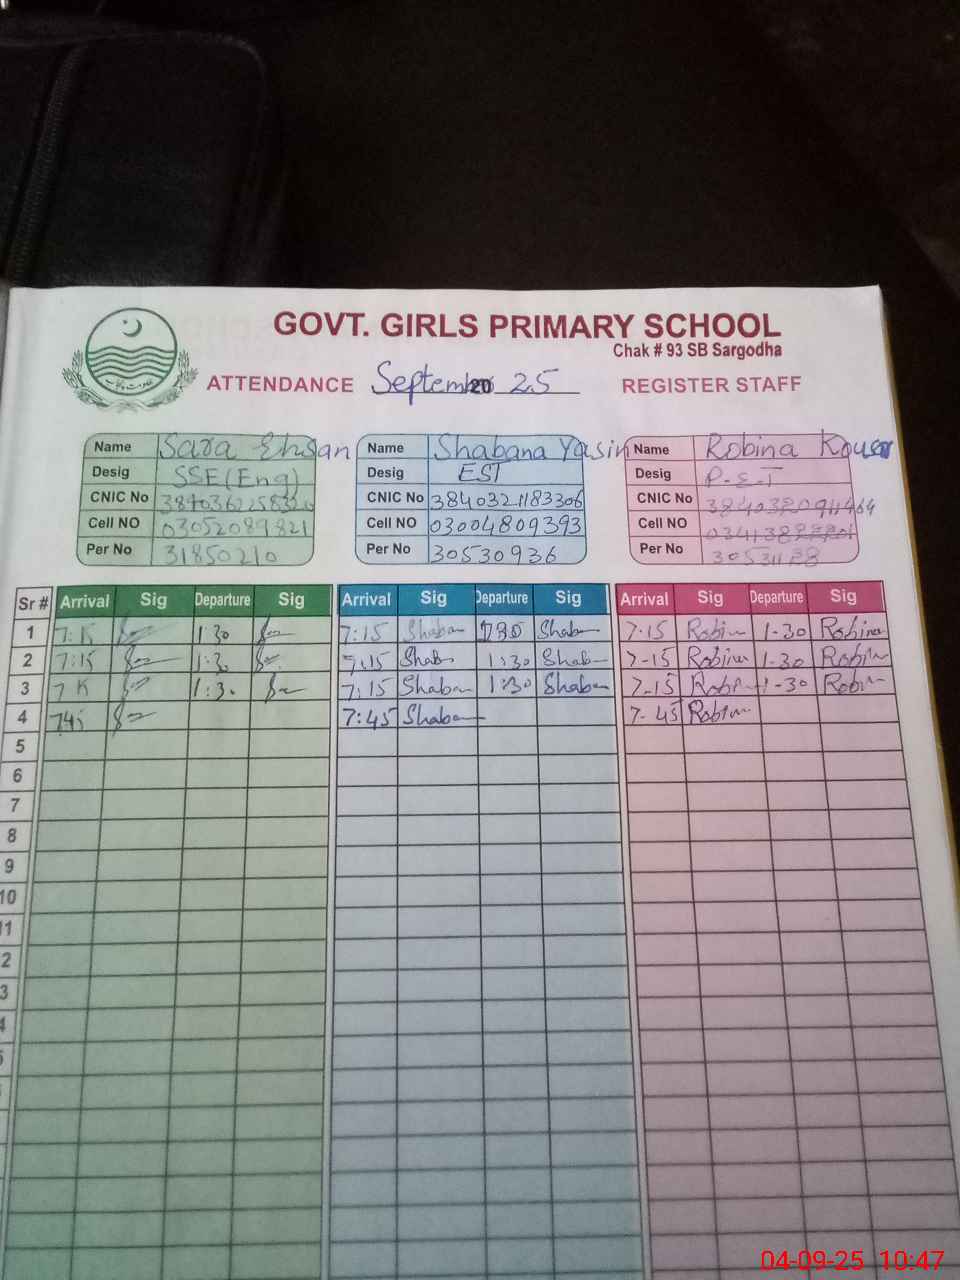 GOVT. GIRLS PRIMARY SCHOOL
Chak # 93 SB Sargodha
ATTENDANCE September 20 25 REGISTER STAFF
Name Sara Ehsan Name Shabana Yasin Name Robina Kousar
Desig SSE(Eng) Desig EST Desig P.S.T
CNIC No CNIC No 3840321183306 CNIC No
Cell NO 03052089821 Cell NO 03004809393 Cell NO
Per No 31850210 Per No 30530936 Per No
Sr # Arrival Sig Departure Sig Arrival Sig Departure Sig Arrival Sig Departure Sig
1 7:15 1:30 7:15 Shaban Shaban 7-15 Robina 1-30 Robina
2 7:15 1:30 7:15 Shab 1:30 Shaban 7-15 Robina 1-30 Robin
3 7 15 1:30 7:15 Shaban 1:30 Shaban 7-15 Robin 1-30 Robin
4 745 7:45 Shaban 7-45 Robina
5
6
7
8
9
10
11
2
3
4
5
04-09-25 10:47